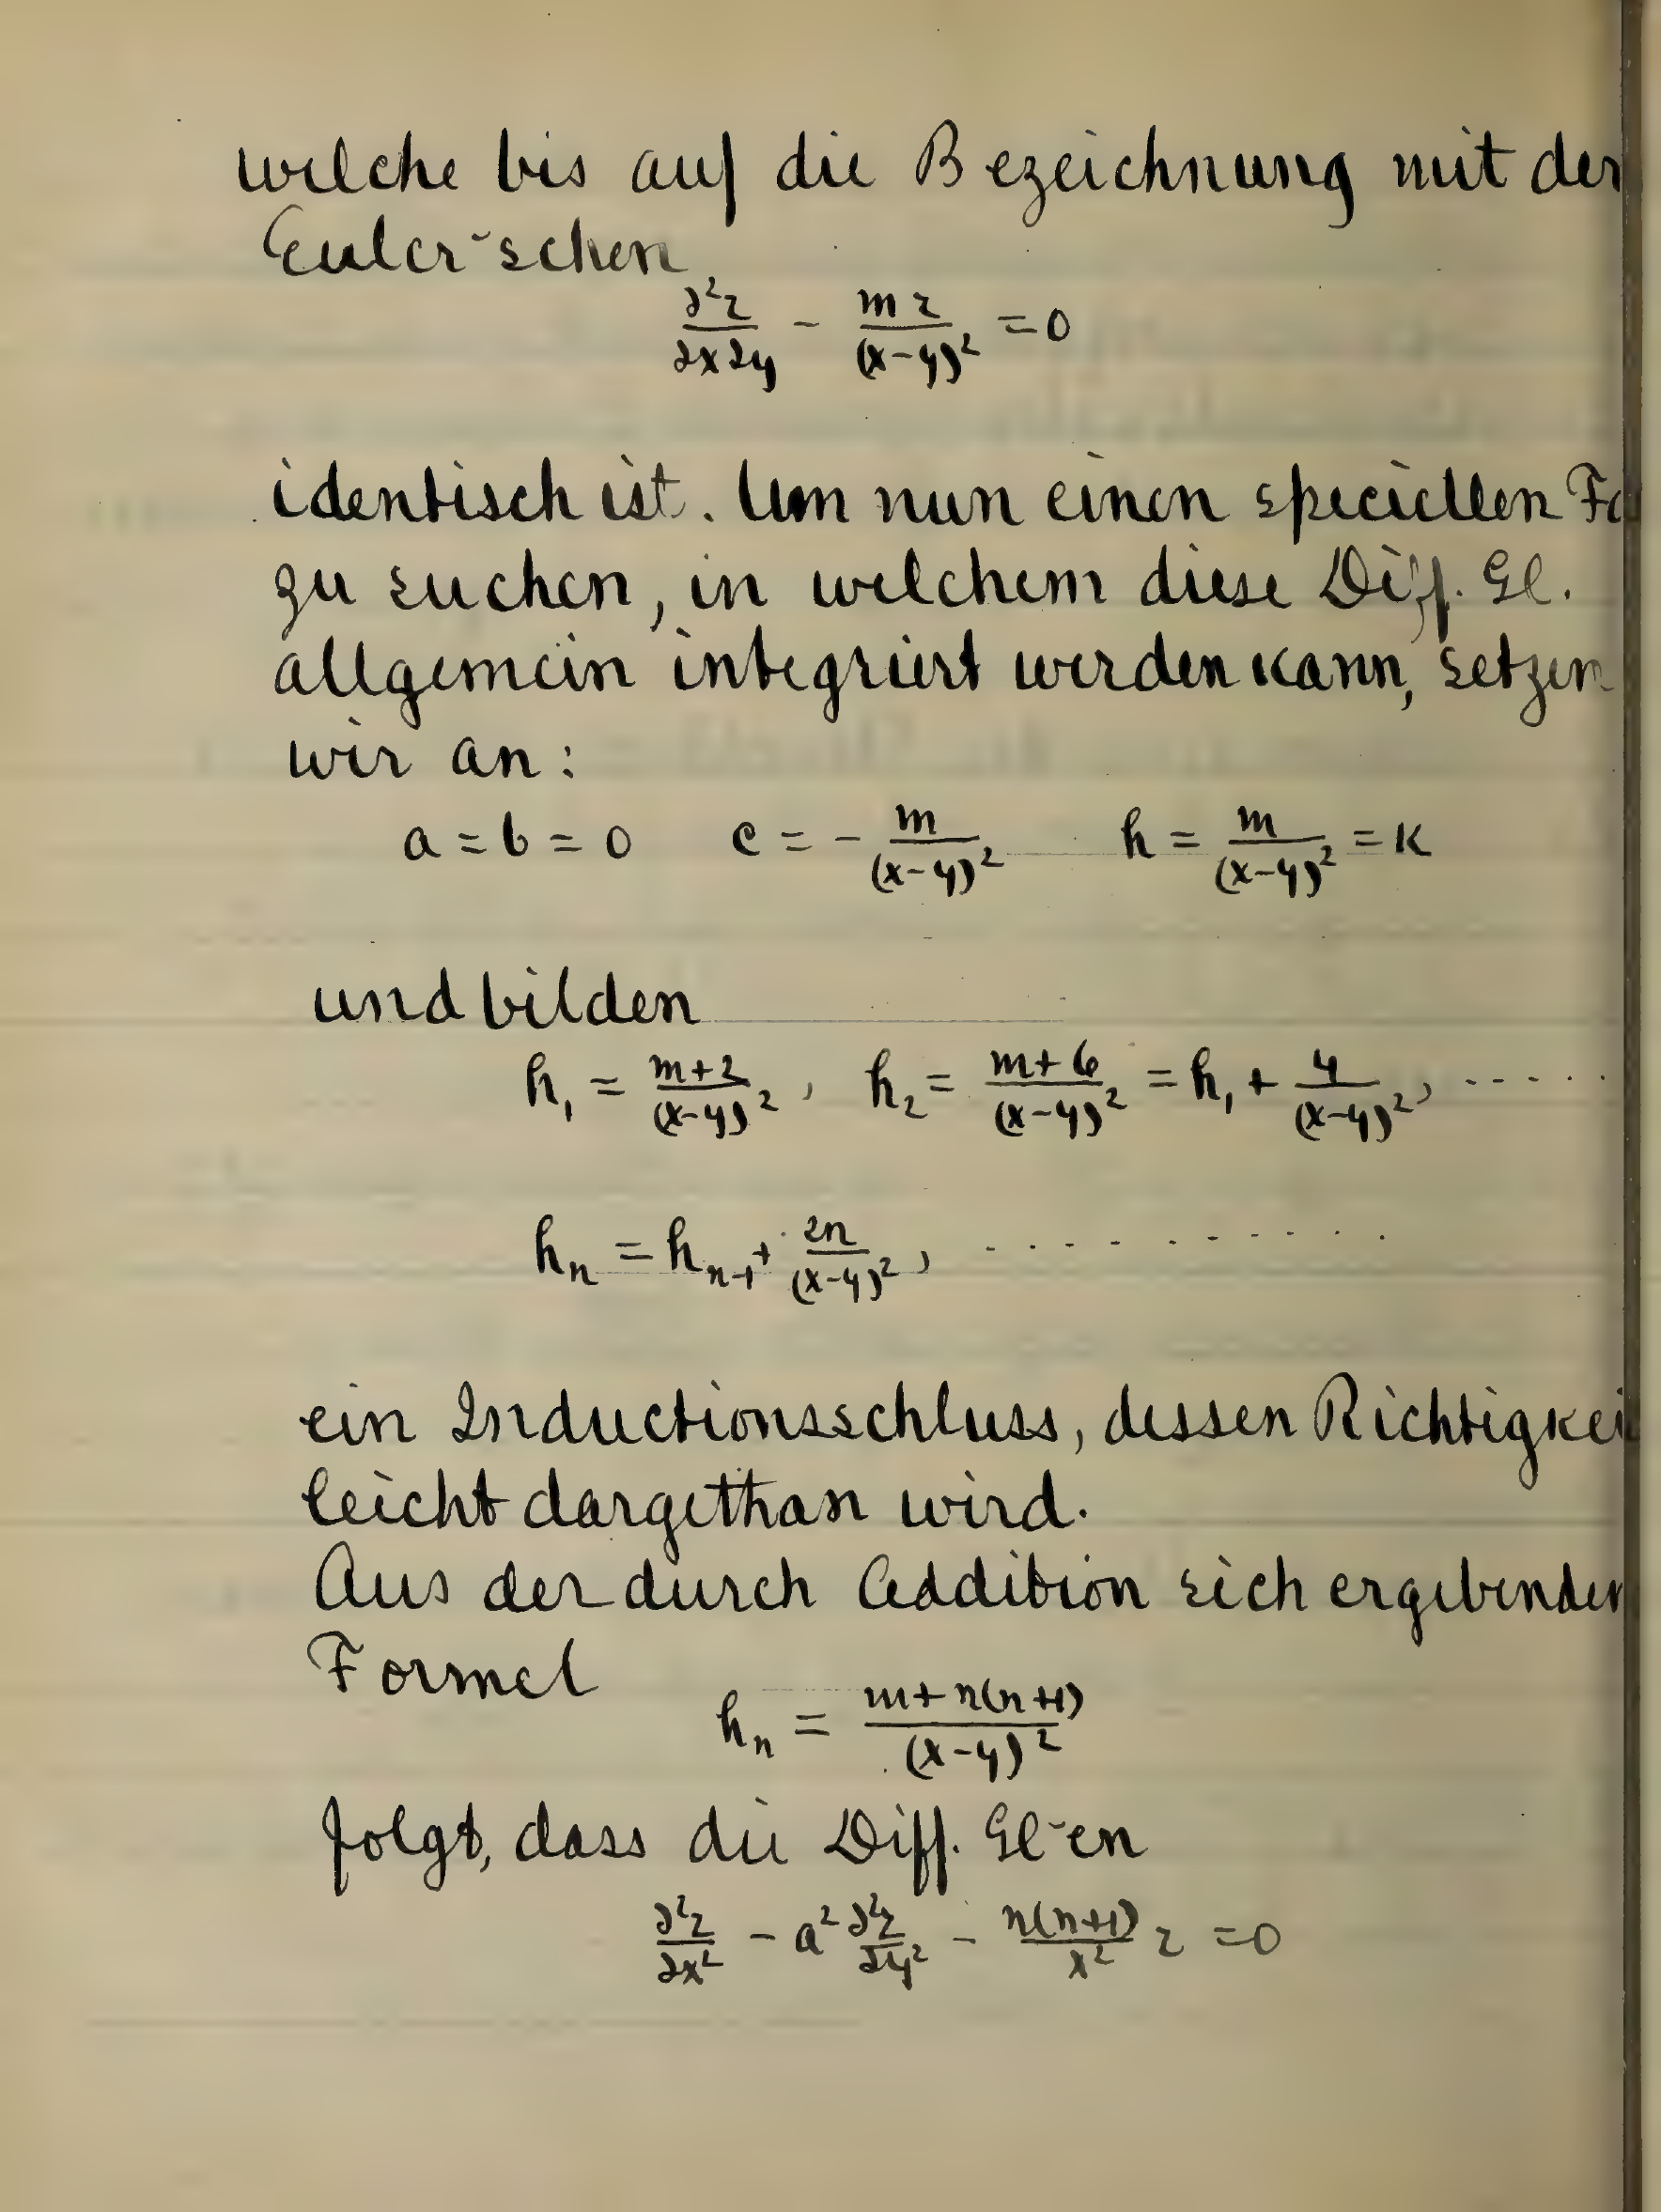 welche bis auf die Bezeichnung mit der
Euler'schen
∂²z/∂x∂y - mz/(x-y)² = 0
identisch ist. Um nun einen speciellen
zu suchen, in welchem diese Diff. Gl.
allgemein integriert werden kann, setzen
wir an:
a = b = 0 c = - m/(x-y)² h = m/(x-y)² = k
und bilden
h₁ = m+2/(x-y)², h₂ = m+6/(x-y)² = h₁ + 4/(x-y)², .....
hₙ = hₙ₋₁ + 2n/(x-y)², ..........
ein Inductionsschluss, dessen Richtigkei
leicht dargethan wird.
Aus der durch Addition sich ergebenden
Formel
hₙ = m+n(n+1)/(x-y)²
folgt, dass die Diff. Gl-en
∂²z/∂x² - a² ∂²z/∂y² - n(n+1)/x² z = 0